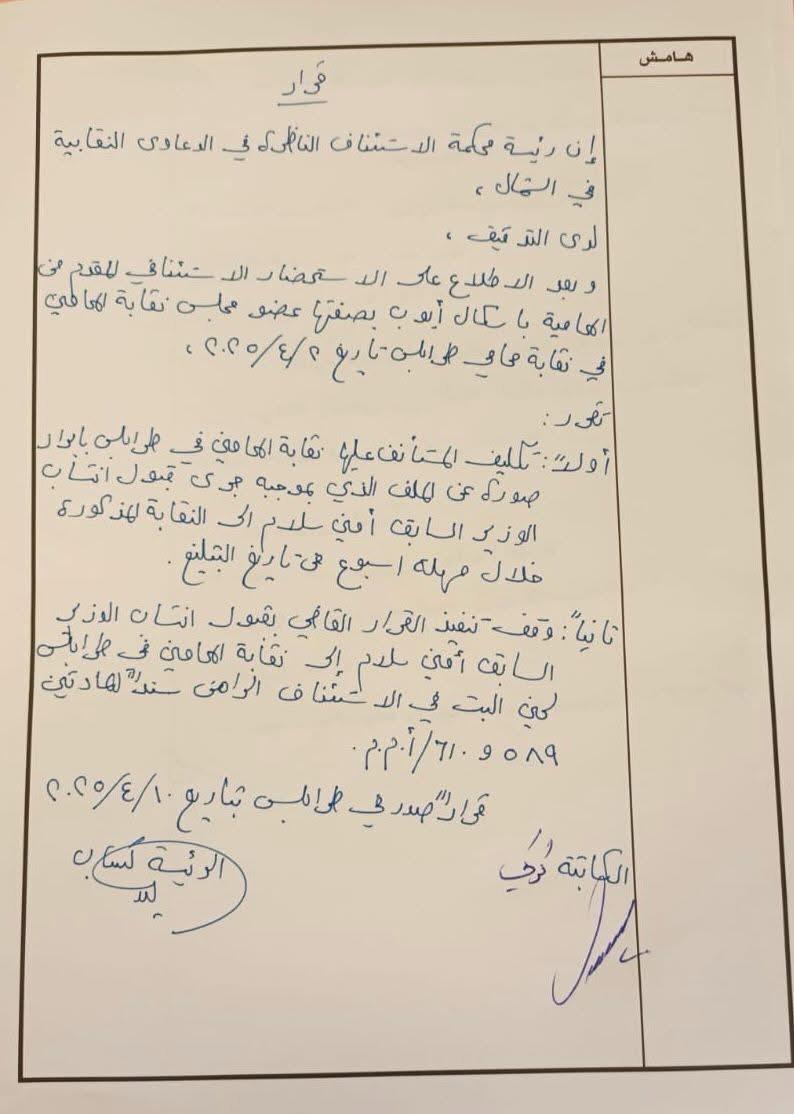 هامش
قرار
إن رئيسة محكمة الاستئناف الناظرة في الدعاوى النقابية
في الشمال ،
لدى التدقيق ،
و بعد الاطلاع على الاستحضار الاستئنافي المقدم من
المحامية باسكال أيوب بصفتها عضو مجلس نقابة المحامين
في نقابة محامي طرابلس تاريخ ٢٠٢٥/٤/٢ ،
تقرر :
أولاً : تكليف المستأنف عليها نقابة المحامين في طرابلس بإبراز
صورة عن الملف الذي بموجبه جرى قبول انتساب
الوزير السابق أمين سلام الى النقابة المذكورة
خلال مهلة اسبوع من تاريخ التبليغ .
ثانياً : وقف تنفيذ القرار القاضي بقبول انتساب الوزير
السابق أمين سلام إلى نقابة المحامين في طرابلس
لحين البت في الاستئناف الراهن سنداً للمادتين
٥٨٩ و ٦١٠/أ.م.م.
قراراً صدر في طرابلس بتاريخ ٢٠٢٥/٤/١٠
الكاتبة
الرئيسة